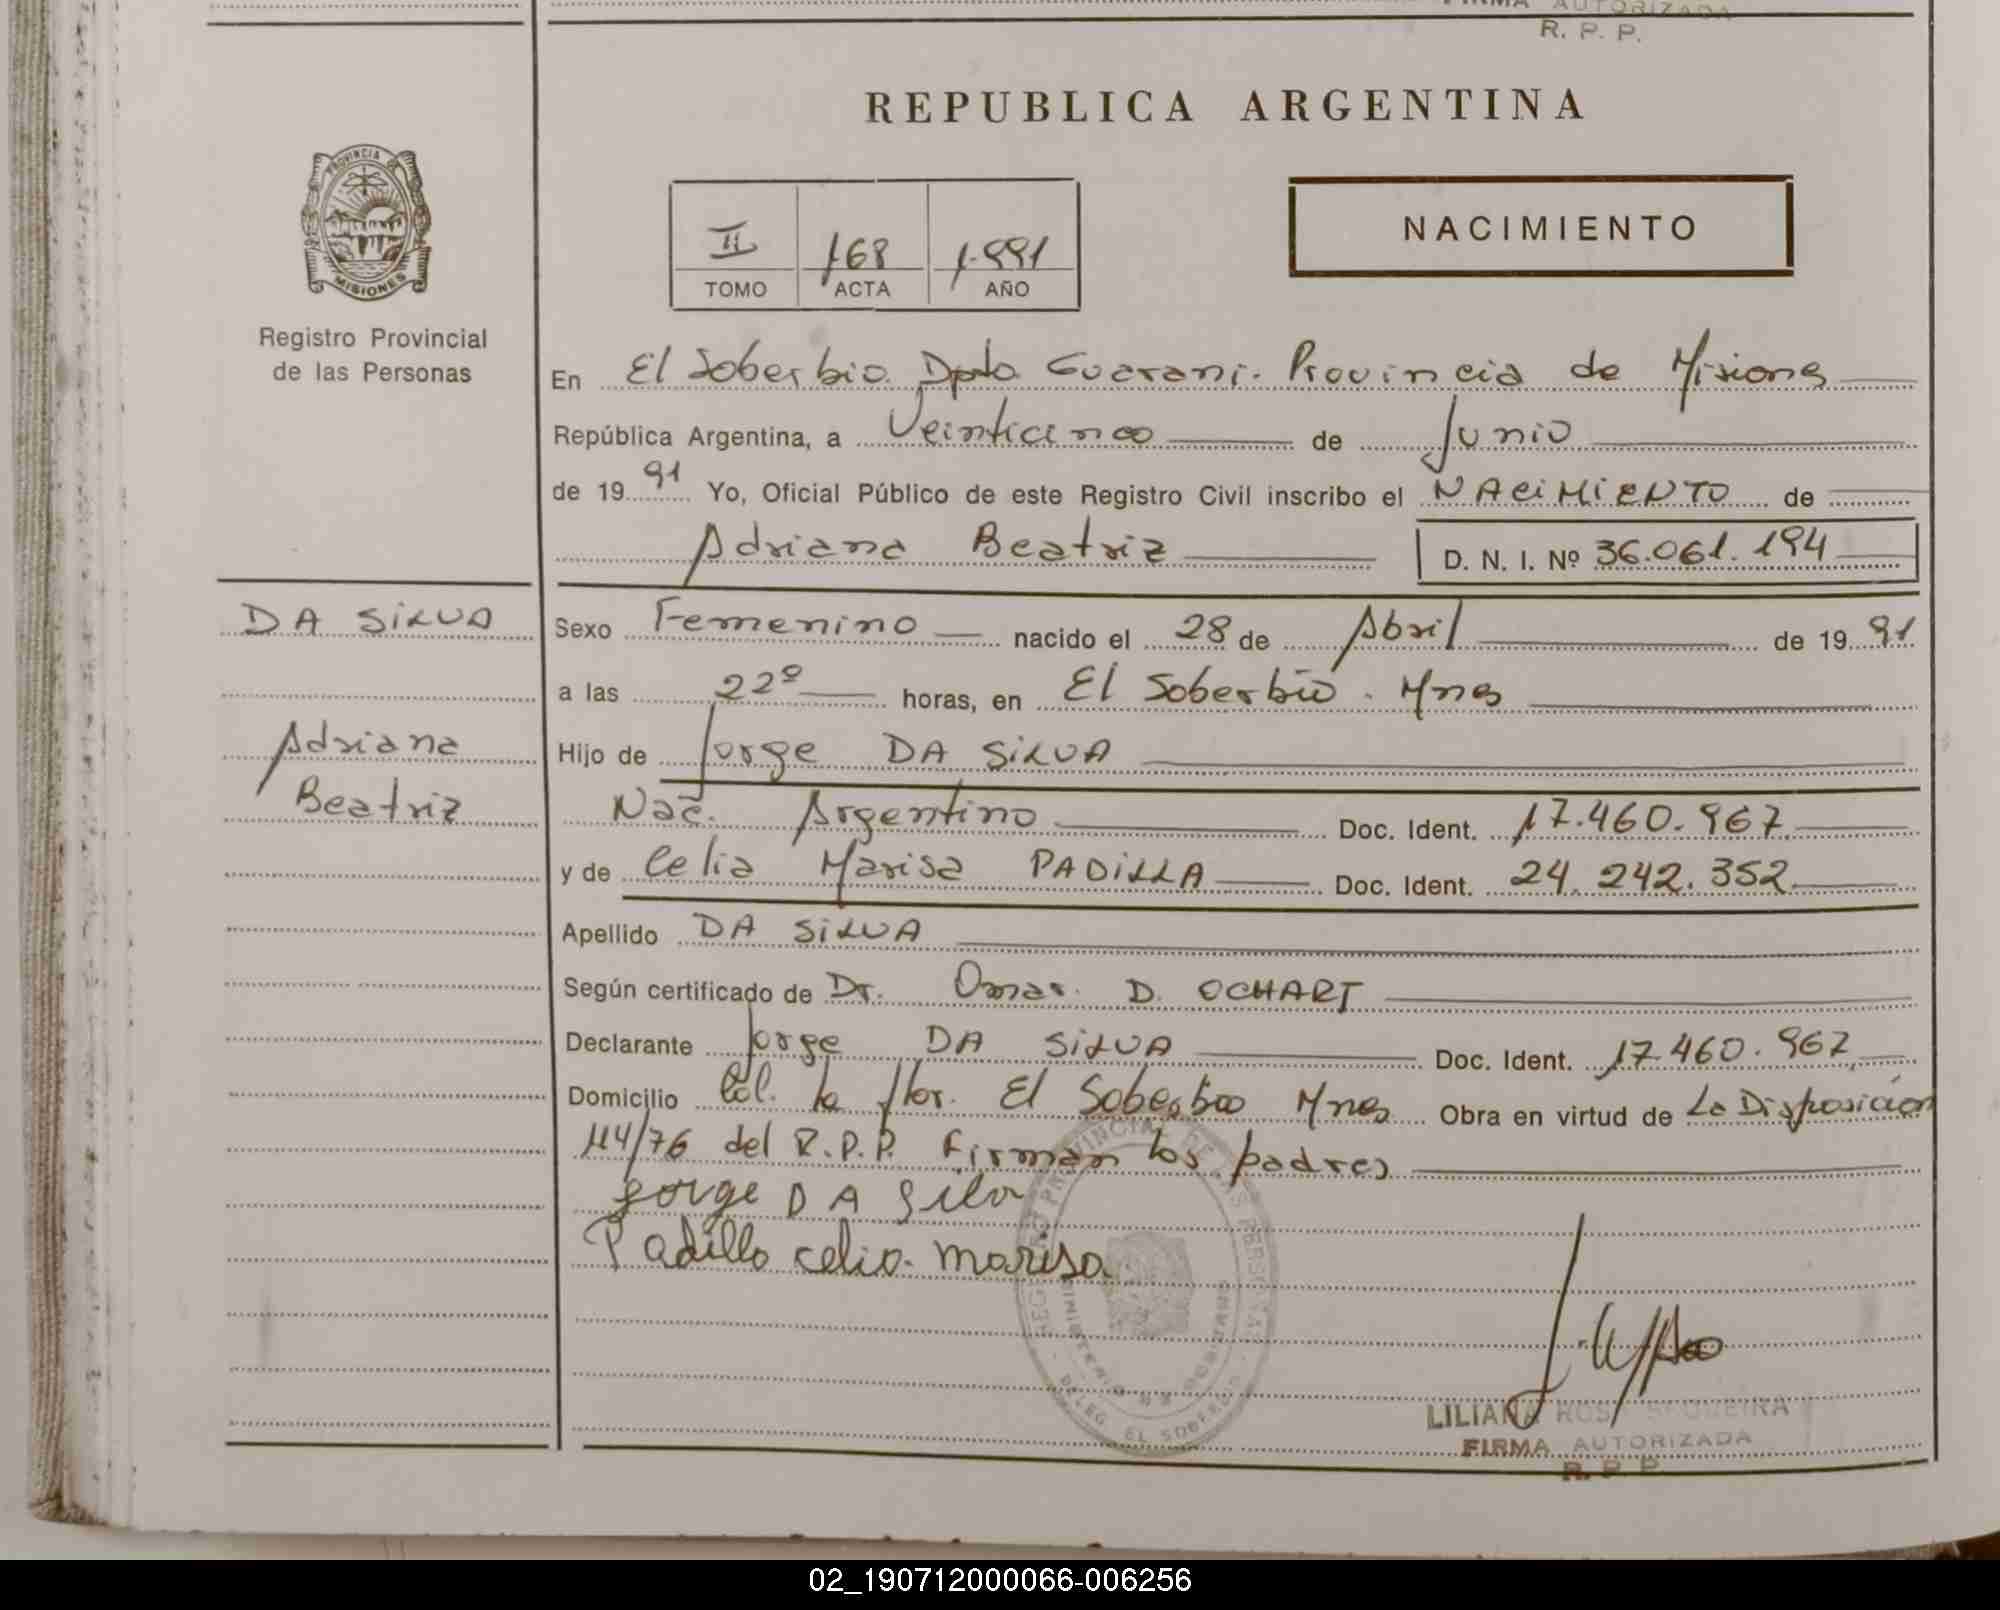 FIRMA AUTORIZADA
R. P. P.
REPUBLICA ARGENTINA
PROVINCIA
MISIONES
Registro Provincial
de las Personas
II 168 1.991
TOMO ACTA AÑO
NACIMIENTO
En El Soberbio. Dpto. Guarani. Provincia de Misiones
República Argentina, a Veinticinco de Junio
de 1991 Yo, Oficial Público de este Registro Civil inscribo el NACIMIENTO de
Adriana Beatriz D. N. I. Nº 36.061.194
DA SILVA
Adriana
Beatriz
Sexo Femenino nacido el 28 de Abril de 1991
a las 22º horas, en El Soberbio. Mnes
Hijo de Jorge DA SILVA
Nac. Argentino Doc. Ident. 17.460.967
y de Celia Marisa PADILLA Doc. Ident. 24.242.352
Apellido DA SILVA
Según certificado de Dr. Omar D. OCHART
Declarante Jorge DA SILVA Doc. Ident. 17.460.967
Domicilio Col. la flor. El Soberbio Mnes Obra en virtud de La Disposición
114/76 del R.P.P. Firman los padres
Jorge DA Silva
Padilla celia. marisa
REGISTRO PROVINCIAL DE LAS PERSONAS
MINISTERIO DE GOBIERNO
DELEG. EL SOBERBIO
LILIANA ROSA SEQUEIRA
FIRMA AUTORIZADA
R. P. P.
02_190712000066-006256